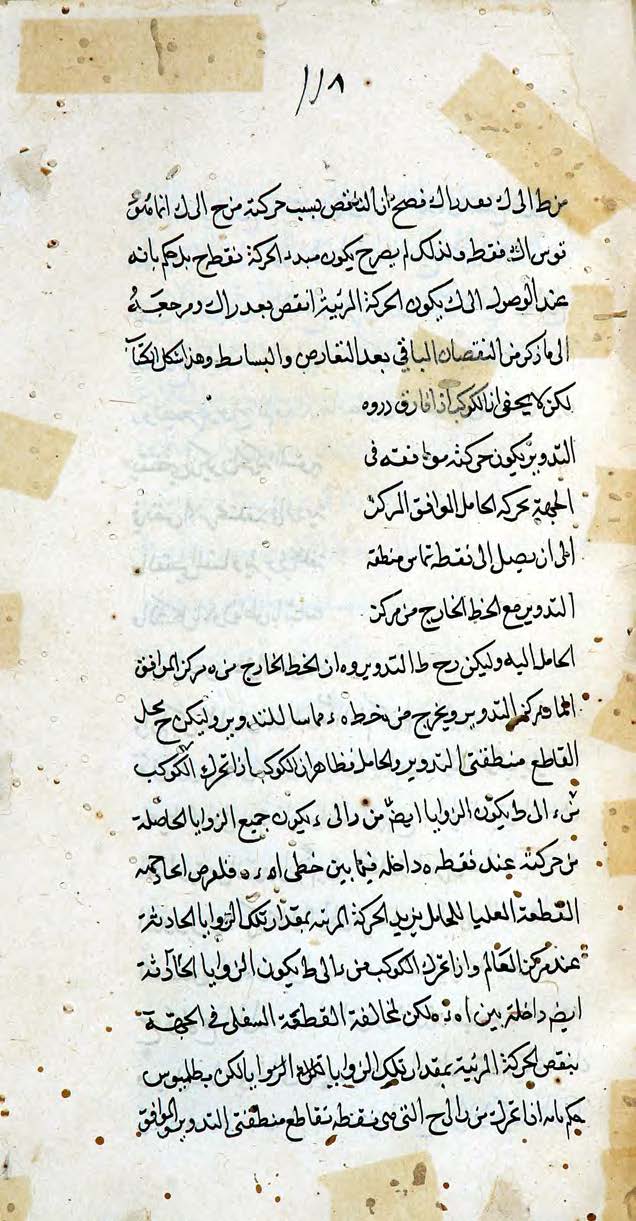 ١١٨
من ط الى ك بعد راك فصح ان النقص بسبب حركته من ح الى ك انما هو
قوس اك فقط ولذلك لم يصرح بكون مبدء الحركة نقطة ح بل حكم بانه
عند الوصول الى ك يكون الحركة المرئية انقص بعد راك ومرجعه
الى ما ذكر من النقصان الباقي بعد التعارض والبساط وهذا شكل الكتاب
لكن لا يخفى ان الكوكب اذا فارق دروه
التدوير يكون حركته موافقه فى
الجهة بحركه الحامل الموافق المركز
الى ان يصل الى نقطه تماس منطقه
التدوير مع الخط الخارج من مركز
الحامل اليه وليكن رح ط التدوير و ه ا ن الخط الخارج من ه مركز الموافق
المار بمركز التدوير ويخرج من خط ه ء مماسا للتدوير وليكن ح
القاطع منطقتى التدوير والحامل فظاهر ان الكوكب اذا تحرك الكوكب
من ء الى ط يكون الزوايا ايضا من ر الى ء يكون جميع الزوايا الحاصلة
من حركته عند نقطه ه داخله فيما بين خطى اه ء ه فلعرض
القطعة العليا للحامل يزيد الحركة المرئيه بمقدار تلك الزوايا الحادثة
عند مركز العالم واذا تحرك الكوكب من ء الى ط يكون الزوايا الحادثة
ايضا داخلة بين اه ء ه لكن لمخالفة القطعة السفلى فى الجهة
ينقص الحركة المرئية بمقدار تلك الزوايا لكن بطلميوس
حكم بانه اذا تحرك من ر الى ح التى هى نقطه تقاطع منطقتى التدوير والموافق